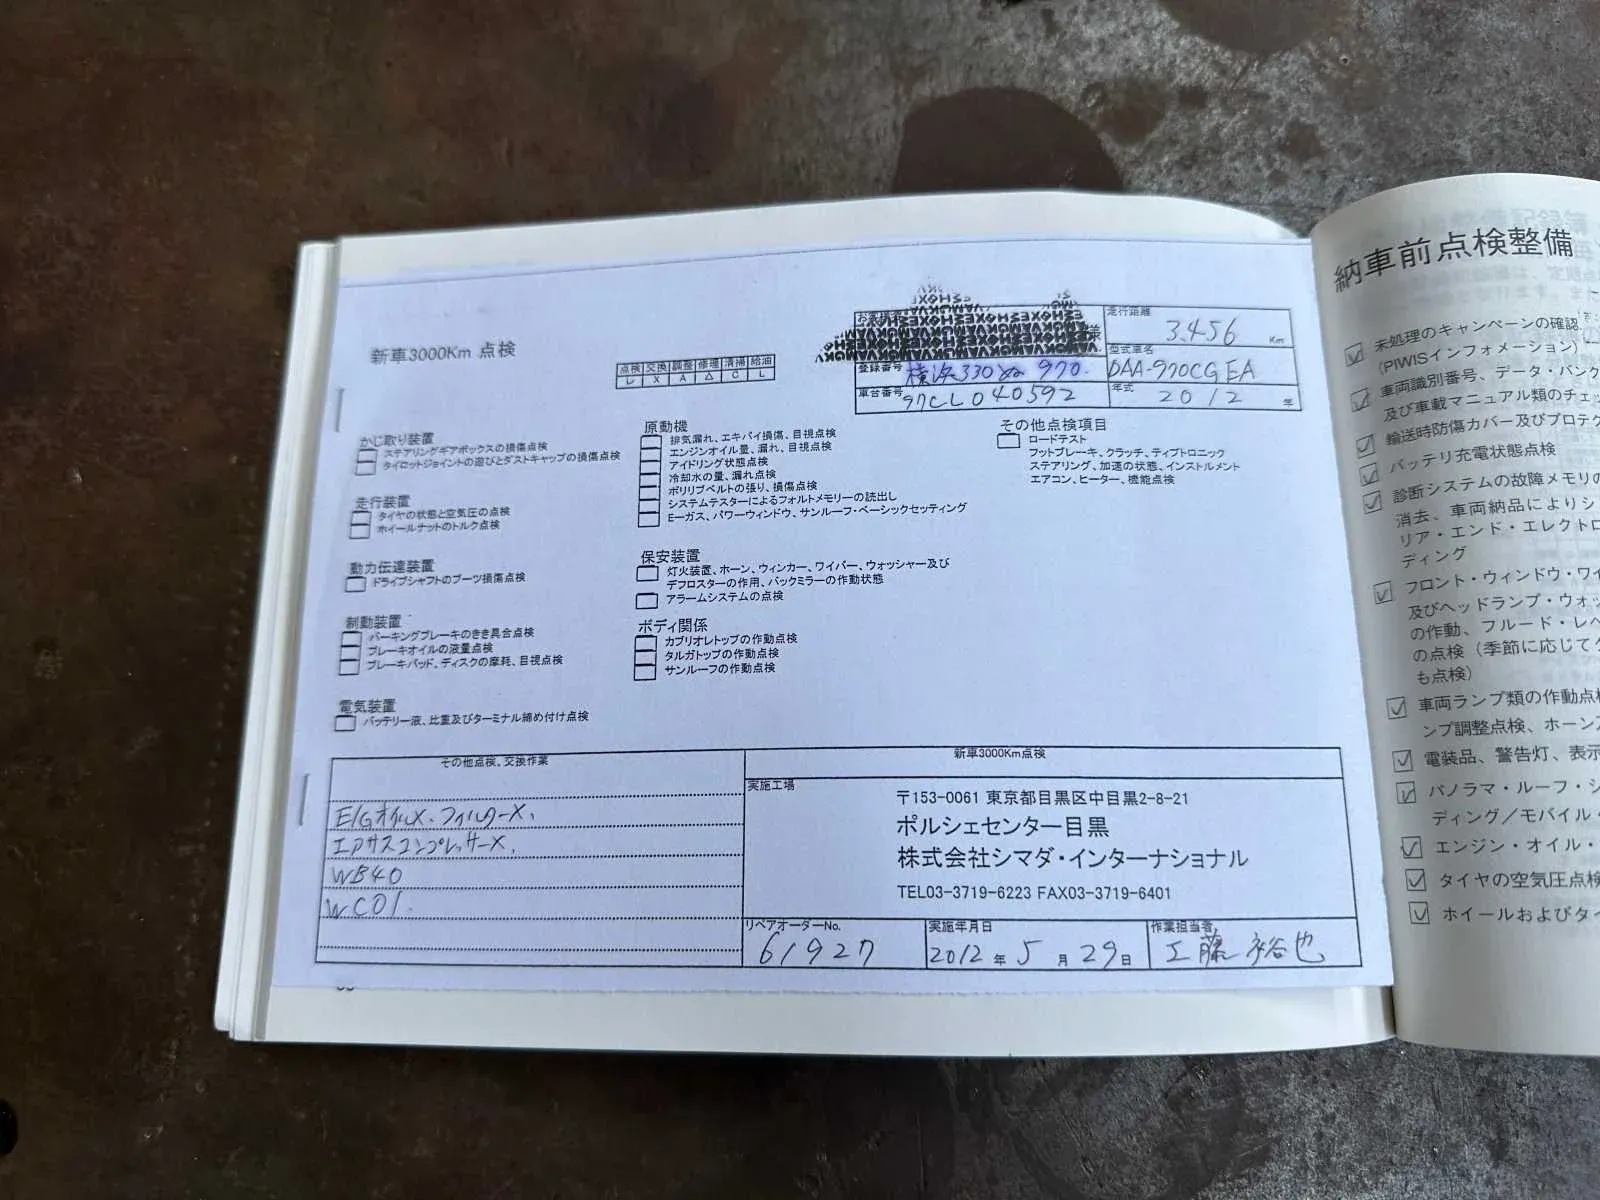 新車3000Km 点検
点検 交換 調整 修理 清掃 給油
レ X A △ C L
様
走行距離
3,456 Km
登録番号 横浜330 ぬ 970.
型式車名
DAA-970CGEA
車台番号 97CL040592
年式 2012 年
かじ取り装置
ステアリングギアボックスの損傷点検
タイロットジョイントの遊びとダストキャップの損傷点検
走行装置
タイヤの状態と空気圧の点検
ホイールナットのトルク点検
動力伝達装置
ドライブシャフトのブーツ損傷点検
制動装置
パーキングブレーキのきき具合点検
ブレーキオイルの液量点検
ブレーキパッド、ディスクの摩耗、目視点検
電気装置
バッテリー液、比重及びターミナル締め付け点検
原動機
排気漏れ、エキパイ損傷、目視点検
エンジンオイル量、漏れ、目視点検
アイドリング状態点検
冷却水の量、漏れ点検
ポリリブベルトの張り、損傷点検
システムテスターによるフォルトメモリーの読出し
E－ガス、パワーウィンドウ、サンルーフ・ベーシックセッティング
保安装置
灯火装置、ホーン、ウィンカー、ワイパー、ウォッシャー及び
デフロスターの作用、バックミラーの作動状態
アラームシステムの点検
ボディ関係
カブリオレトップの作動点検
タルガトップの作動点検
サンルーフの作動点検
その他点検項目
ロードテスト
フットブレーキ、クラッチ、ティプトロニック
ステアリング、加速の状態、インストルメント
エアコン、ヒーター、機能点検
その他点検、交換作業
E/GオイルX、フィルターX、
エアサスコンプレッサーX、
WB40
WC01.
新車3000Km点検
実施工場
〒153-0061 東京都目黒区中目黒2-8-21
ポルシェセンター目黒
株式会社シマダ・インターナショナル
TEL03-3719-6223 FAX03-3719-6401
リペアオーダーNo.
61927
実施年月日
2012 年 5 月 29 日
作業担当者
工藤 裕也
納車前点検整備
未処理のキャンペーンの確認
(PIWISインフォメーション)
車両識別番号、データ・バンク
及び車載マニュアル類のチェ
輸送時防傷カバー及びプロテク
バッテリ充電状態点検
診断システムの故障メモリの
消去、車両納品によりシ
リア・エンド・エレクトロ
ディング
フロント・ウィンドウ・ワイ
及びヘッドランプ・ウォッ
の作動、フルード・レベ
の点検（季節に応じてク
も点検）
車両ランプ類の作動点検
ンプ調整点検、ホーン
電装品、警告灯、表示
パノラマ・ルーフ・シ
ディング／モバイル・
エンジン・オイル・
タイヤの空気圧点検
ホイールおよびタイ